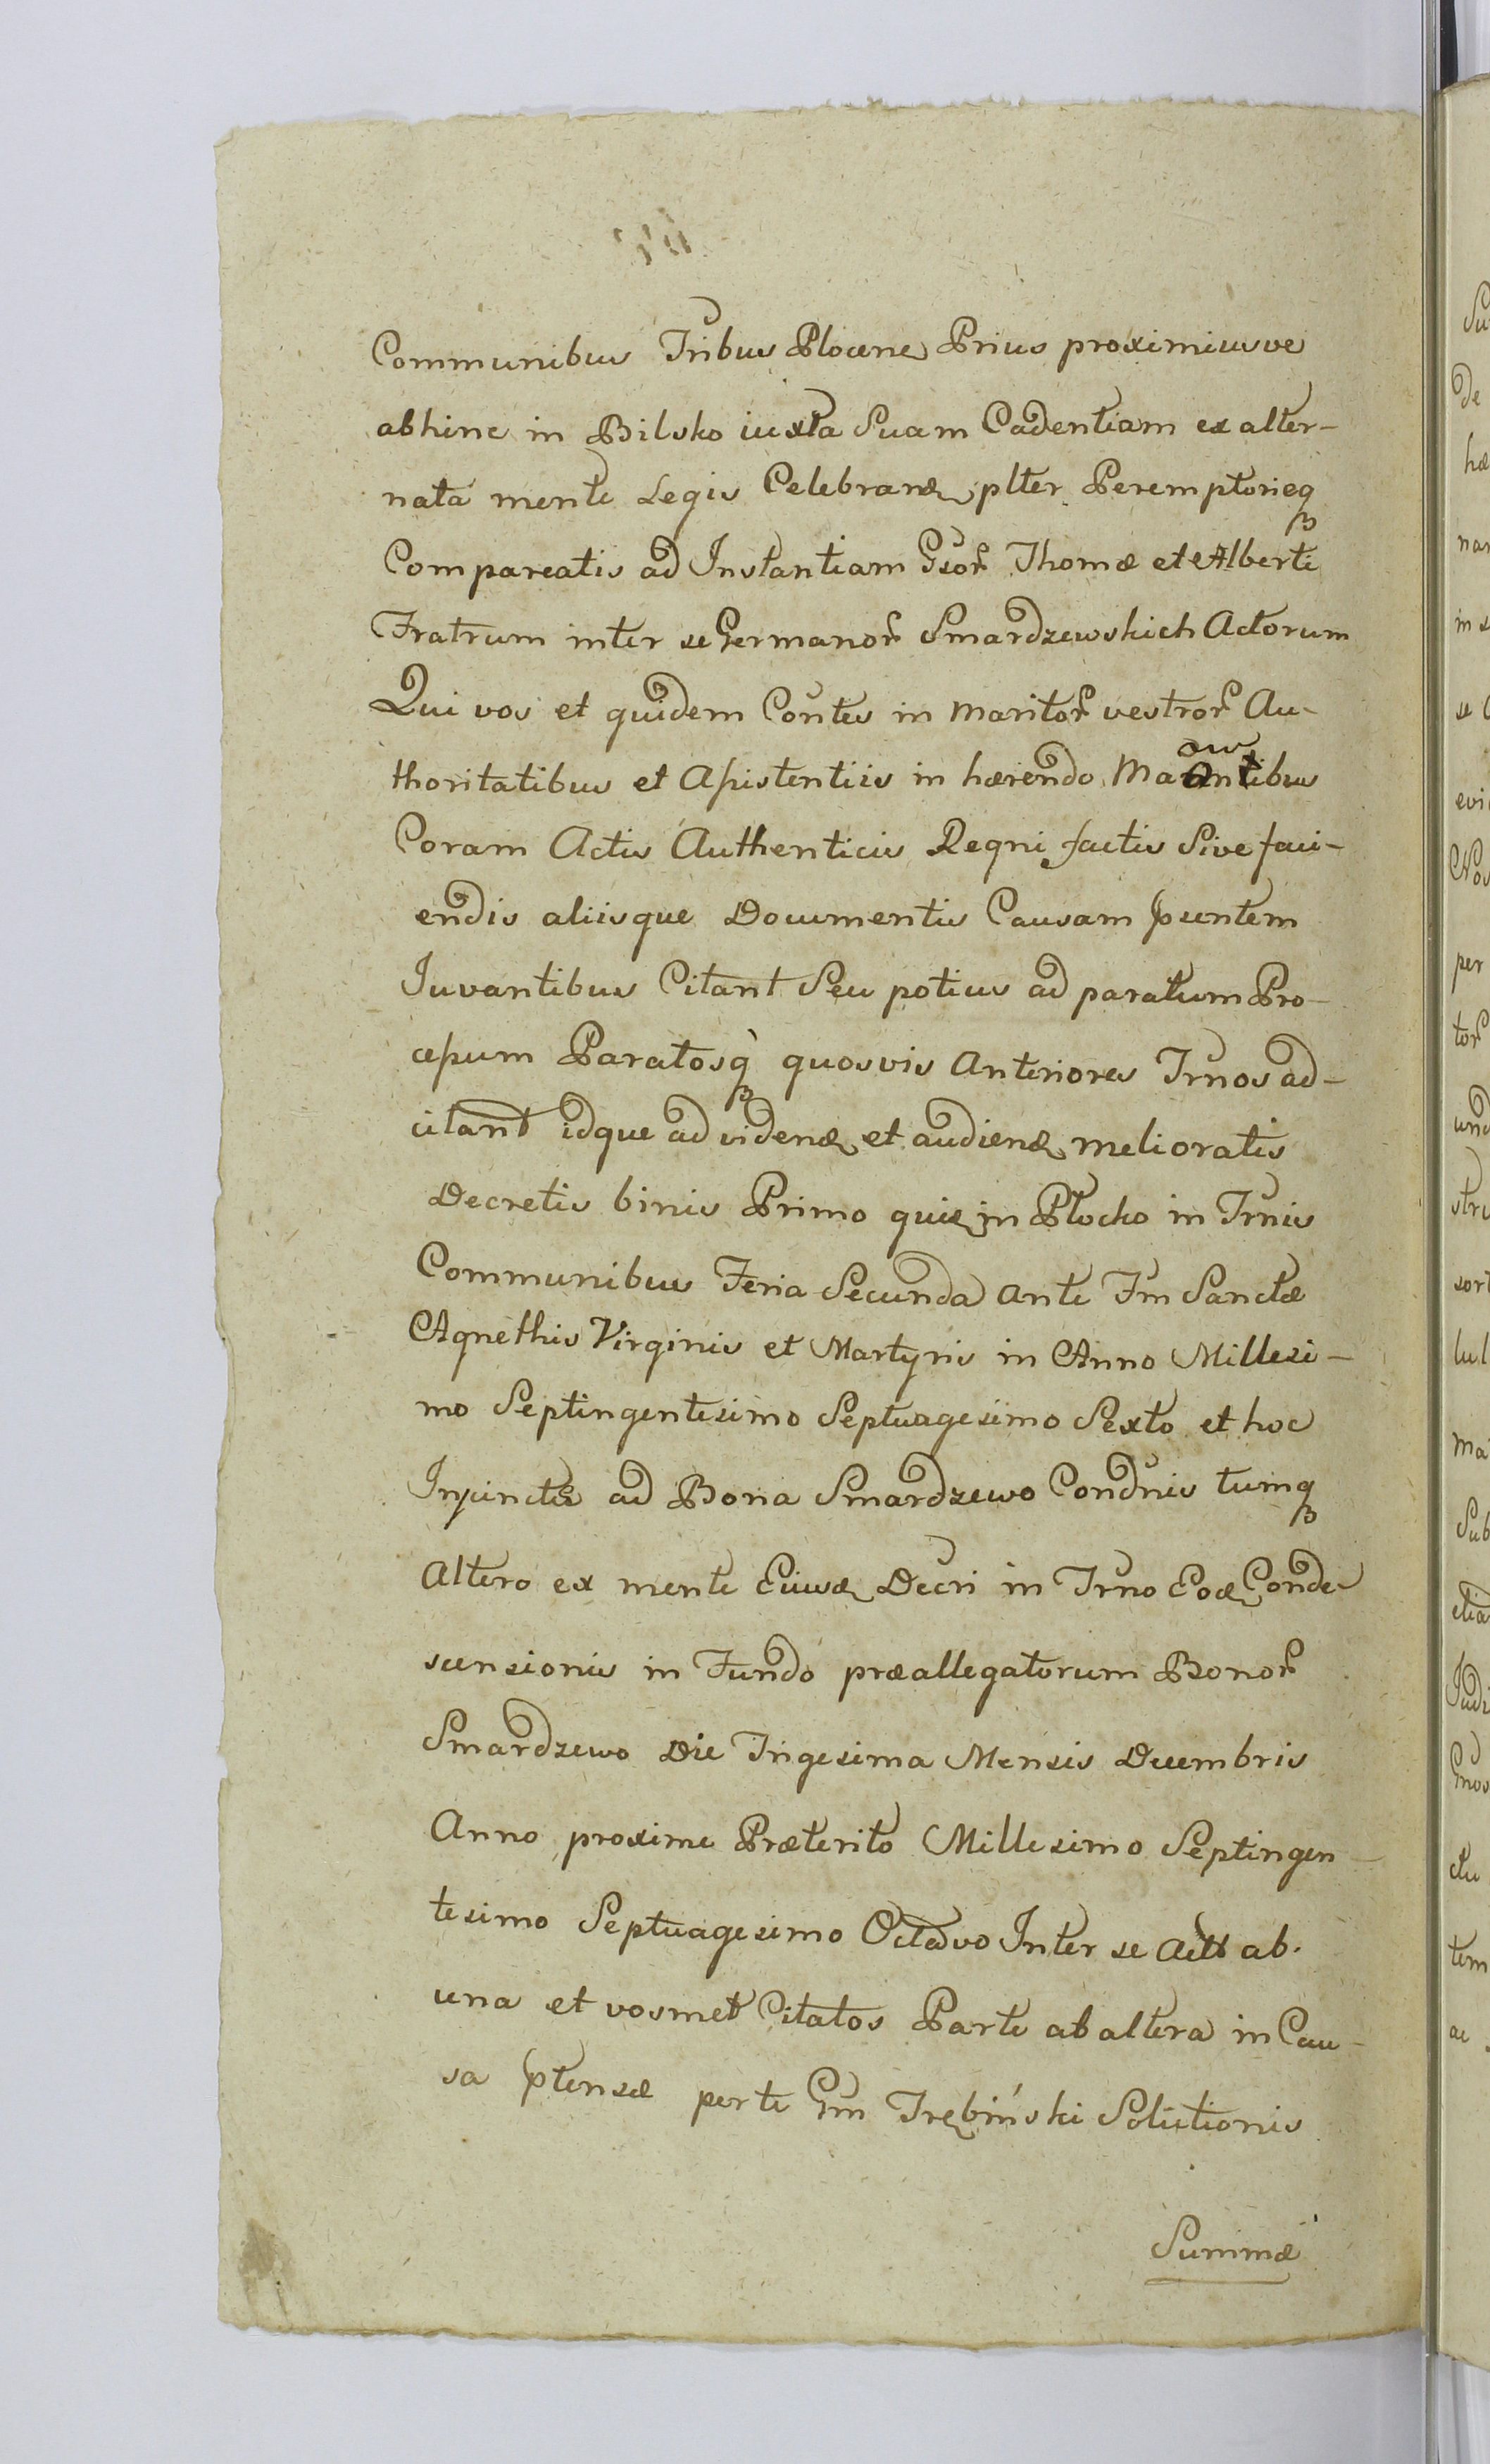 Communibus Tribus Plocene Prius proximiusve
abhinc in Bilsko iuxta Suam Cadentiam ex alter-
nata mente Legis Celebranæ plter Peremptorieq
Compareatis ad Instantiam Gsor Thomæ et Alberti
Fratrum inter se Germanor Smardzewskich Actorum
Qui vos et quidem Contes in Maritor vestror Au-
thoritatibus et Assistentiis in hærendo
Coram Actis Authenticis Regni factis Sive faci-
endis aliisque Documentis Causam pntem
Iuvantibus Citant Seu potius ad paratum Pro-
cessum Paratosq quosvis Anteriores Trnos ad-
citant idque ad videnæ et audienæ melioratis
Decretis binis Primo quie in Płocko in Trnis
Communibus Feria Secunda ante Fm Sanctæ
Agnethis Virginis et Martyris in Anno Millesi-
mo Septingentesimo Septuagesimo Sexto et hoc
Injunctis ad Bona Smardzewo Condnis tumq
Altero ex mente Decri in Trno Conde-
scensionis in Fundo præallegatorum Bonor
Smardzewo Die Trigesima Mensis Decembris
Anno proxime Præterito Millesimo Septingen-
tesimo Septuagesimo Octavo Inter se ab
una et vosmet Citatos Parte ab altera in Cau-
sa ptensæ per te Gm Trębiński Solutionis
Summæ